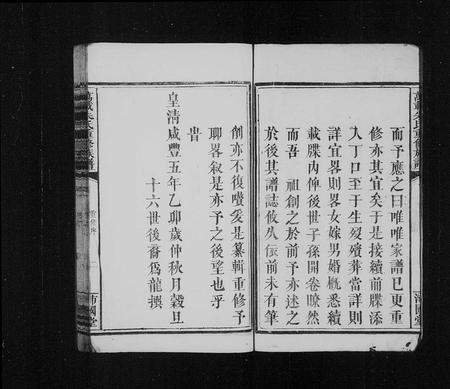 而予應之曰唯唯家譜已更重
修亦其宜矣于是接續前牒添
入丁口至于生歿殯葬當詳則
詳宜畧則畧女嫁男婚概悉續
載牒內俾後世子孫開卷瞭然
而吾　祖創之於前予亦述之
於後其譜誌攸久傳前未有筆
創亦不復噎爰是纂輯重修予
聊畧叙是亦予之後望也乎
旹
皇清咸豐五年乙卯歲仲秋月穀旦
十六世後裔為龍撰
沛國堂
沛國堂